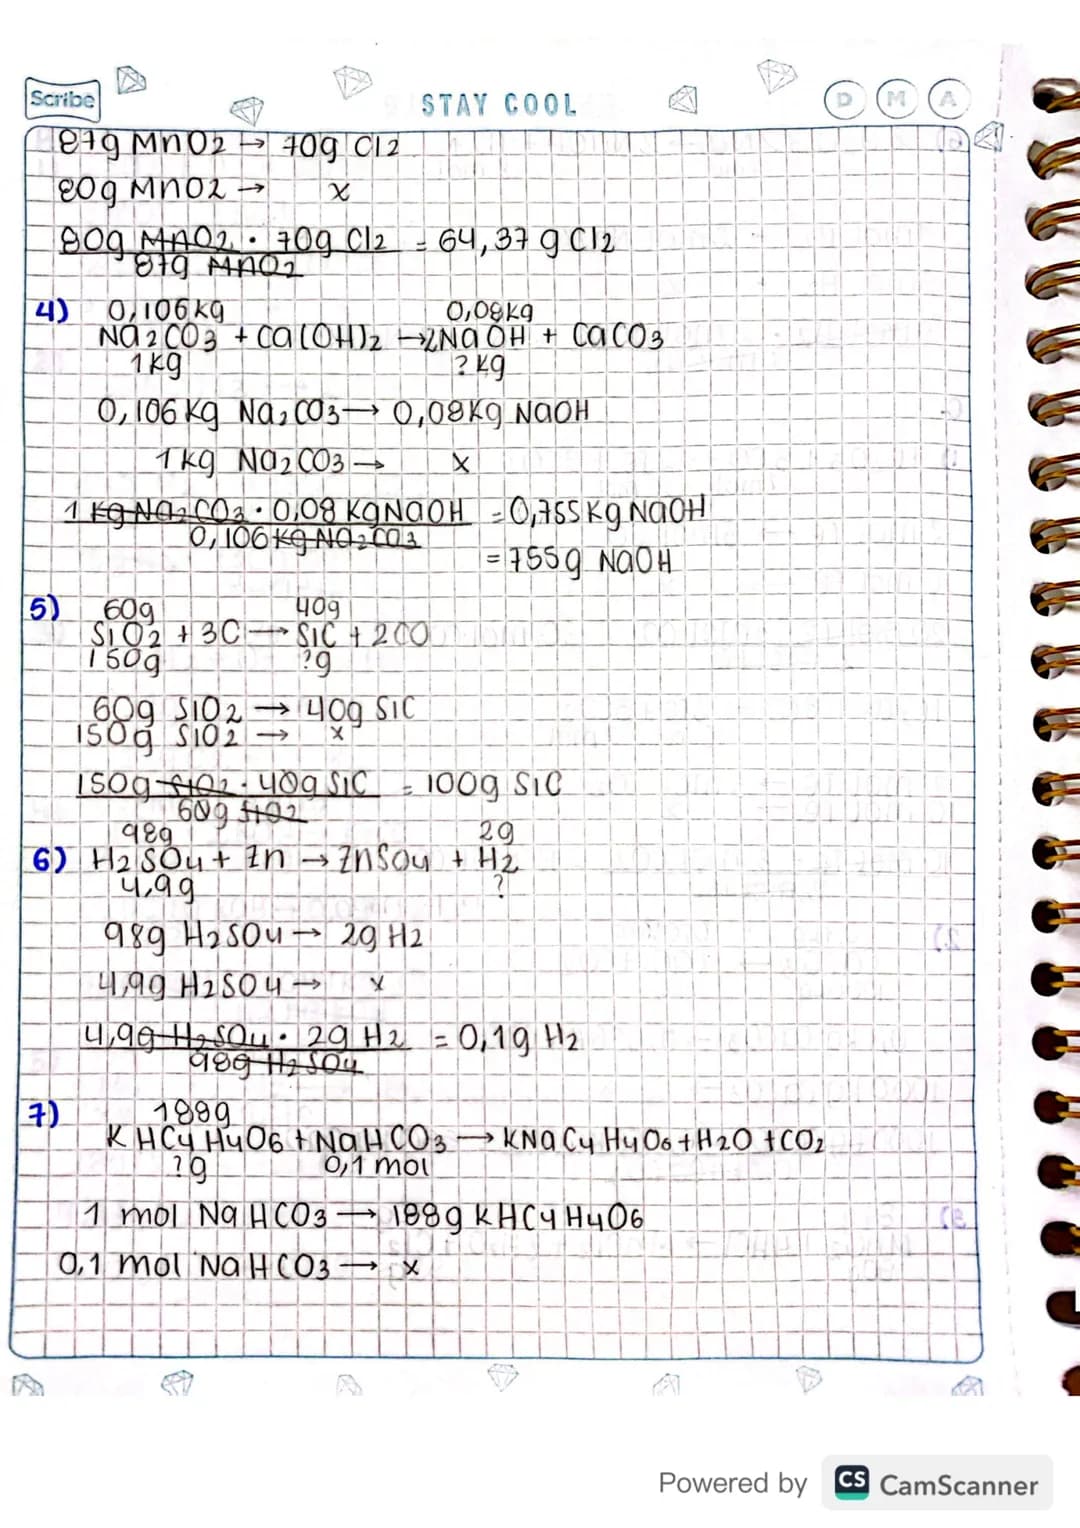 Scribe
STAY COOL
D M A
87g MnO2 → 70g Cl2
80g MnO2 → x
80g MnO2 · 70g Cl2 = 64,37 g Cl2
87g MnO2
4) 0,106 kg 0,08kg
Na2CO3 + Ca(OH)2 → 2NaOH + CaCO3
1kg ? kg
0,106 kg Na2CO3 → 0,08 Kg NaOH
1 kg Na2CO3 → x
1 kg Na2CO3 · 0,08 kg NaOH = 0,755 Kg NaOH
0,106 kg Na2CO3
= 755g NaOH
5) 60g 40g
SiO2 + 3C → SiC + 2CO
150g ?g
60g SiO2 → 40g SiC
150g SiO2 → x
150g SiO2 · 40g SiC = 100g SiC
60g SiO2
98g 2g
6) H2SO4 + Zn → ZnSO4 + H2
4,9g ?
98g H2SO4 → 2g H2
4,9g H2SO4 → x
4,9g H2SO4 · 2g H2 = 0,1g H2
98g H2SO4
7) 188g
KHC4H4O6 + NaHCO3 → KNaC4H4O6 + H2O + CO2
?g 0,1 mol
1 mol NaHCO3 → 188g KHC4H4O6
0,1 mol NaHCO3 → x
Powered by CS CamScanner